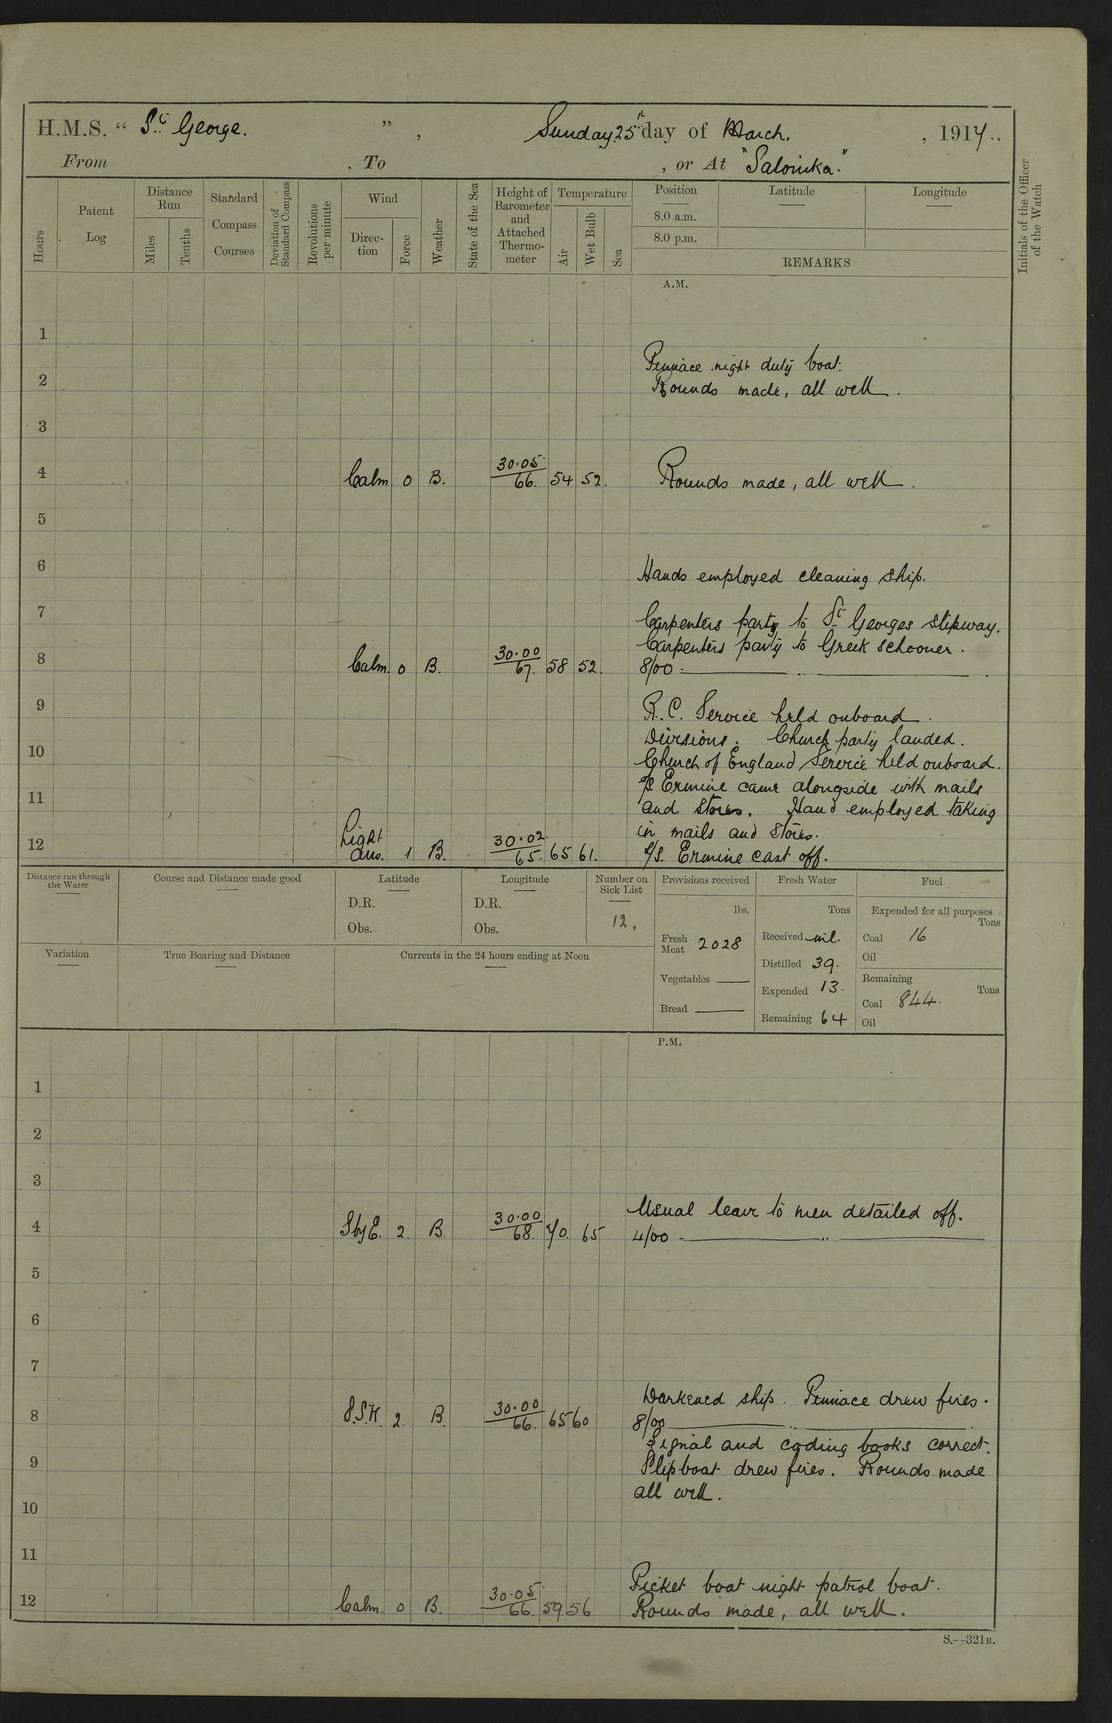 H.M.S. “ St George. ” , Sunday 25th day of March. , 1917..
From . To , or At "Salonika."
Hours
Patent Log
Distance Run
Miles
Tenths
Standard Compass Courses
Deviation of Standard Compass
Revolutions per minute
Wind
Direction
Force
Weather
State of the Sea
Height of Barometer and Attached Thermometer
Temperature
Air
Wet Bulb
Sea
Position Latitude Longitude
8.0 a.m.
8.0 p.m.
REMARKS
Initials of the Officer of the Watch
A.M.
1
Pinnace night duty boat.
2 Rounds made, all well.
3
4 Calm 0 B. 30.05/66. 54 52. Rounds made, all well.
5
6 Hands employed cleaning ship.
7 Carpenters party to St Georges slipway.
Carpenters party to Greek schooner.
8 Calm. 0 B. 30.00/67. 58 52. 8/00
9 R.C. Service held onboard.
Divisions. Church party landed.
10 Church of England Service held onboard.
s/s Ermine came alongside with mails
11 and stores. Hand employed taking
in mails and stores.
12 Light airs. 1 B. 30.02/65. 65 61. s/s. Ermine cast off.
Distance run through the Water
Course and Distance made good
Latitude
D.R.
Obs.
Longitude
D.R.
Obs.
Number on Sick List
12.
Provisions received
lbs.
Fresh Meat 2028
Vegetables
Bread
Fresh Water
Tons
Received nil.
Distilled 39.
Expended 13.
Remaining 64
Fuel
Expended for all purposes
Tons
Coal 16
Oil
Remaining
Tons
Coal 844.
Oil
Variation
True Bearing and Distance
Currents in the 24 hours ending at Noon
P.M.
1
2
3
Usual leave to men detailed off.
4 SbyE. 2. B. 30.00/68. 70. 65 4/00
5
6
7
Darkened ship. Pinnace drew fires.
8 2. B. 30.00/66. 65 60 8/00
Signal and coding books correct.
9 Slipboat drew fires. Rounds made
10 all well.
11
Picket boat night patrol boat.
12 Calm. 0 B. 30.05/66. 59 56 Rounds made, all well.
S.—321B.